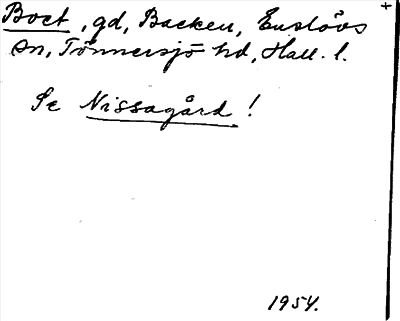 Boet, gd, Backen, Enslövs
sn, Tönnersjö hd, Hall. l.
Se Nissagård!
1954.